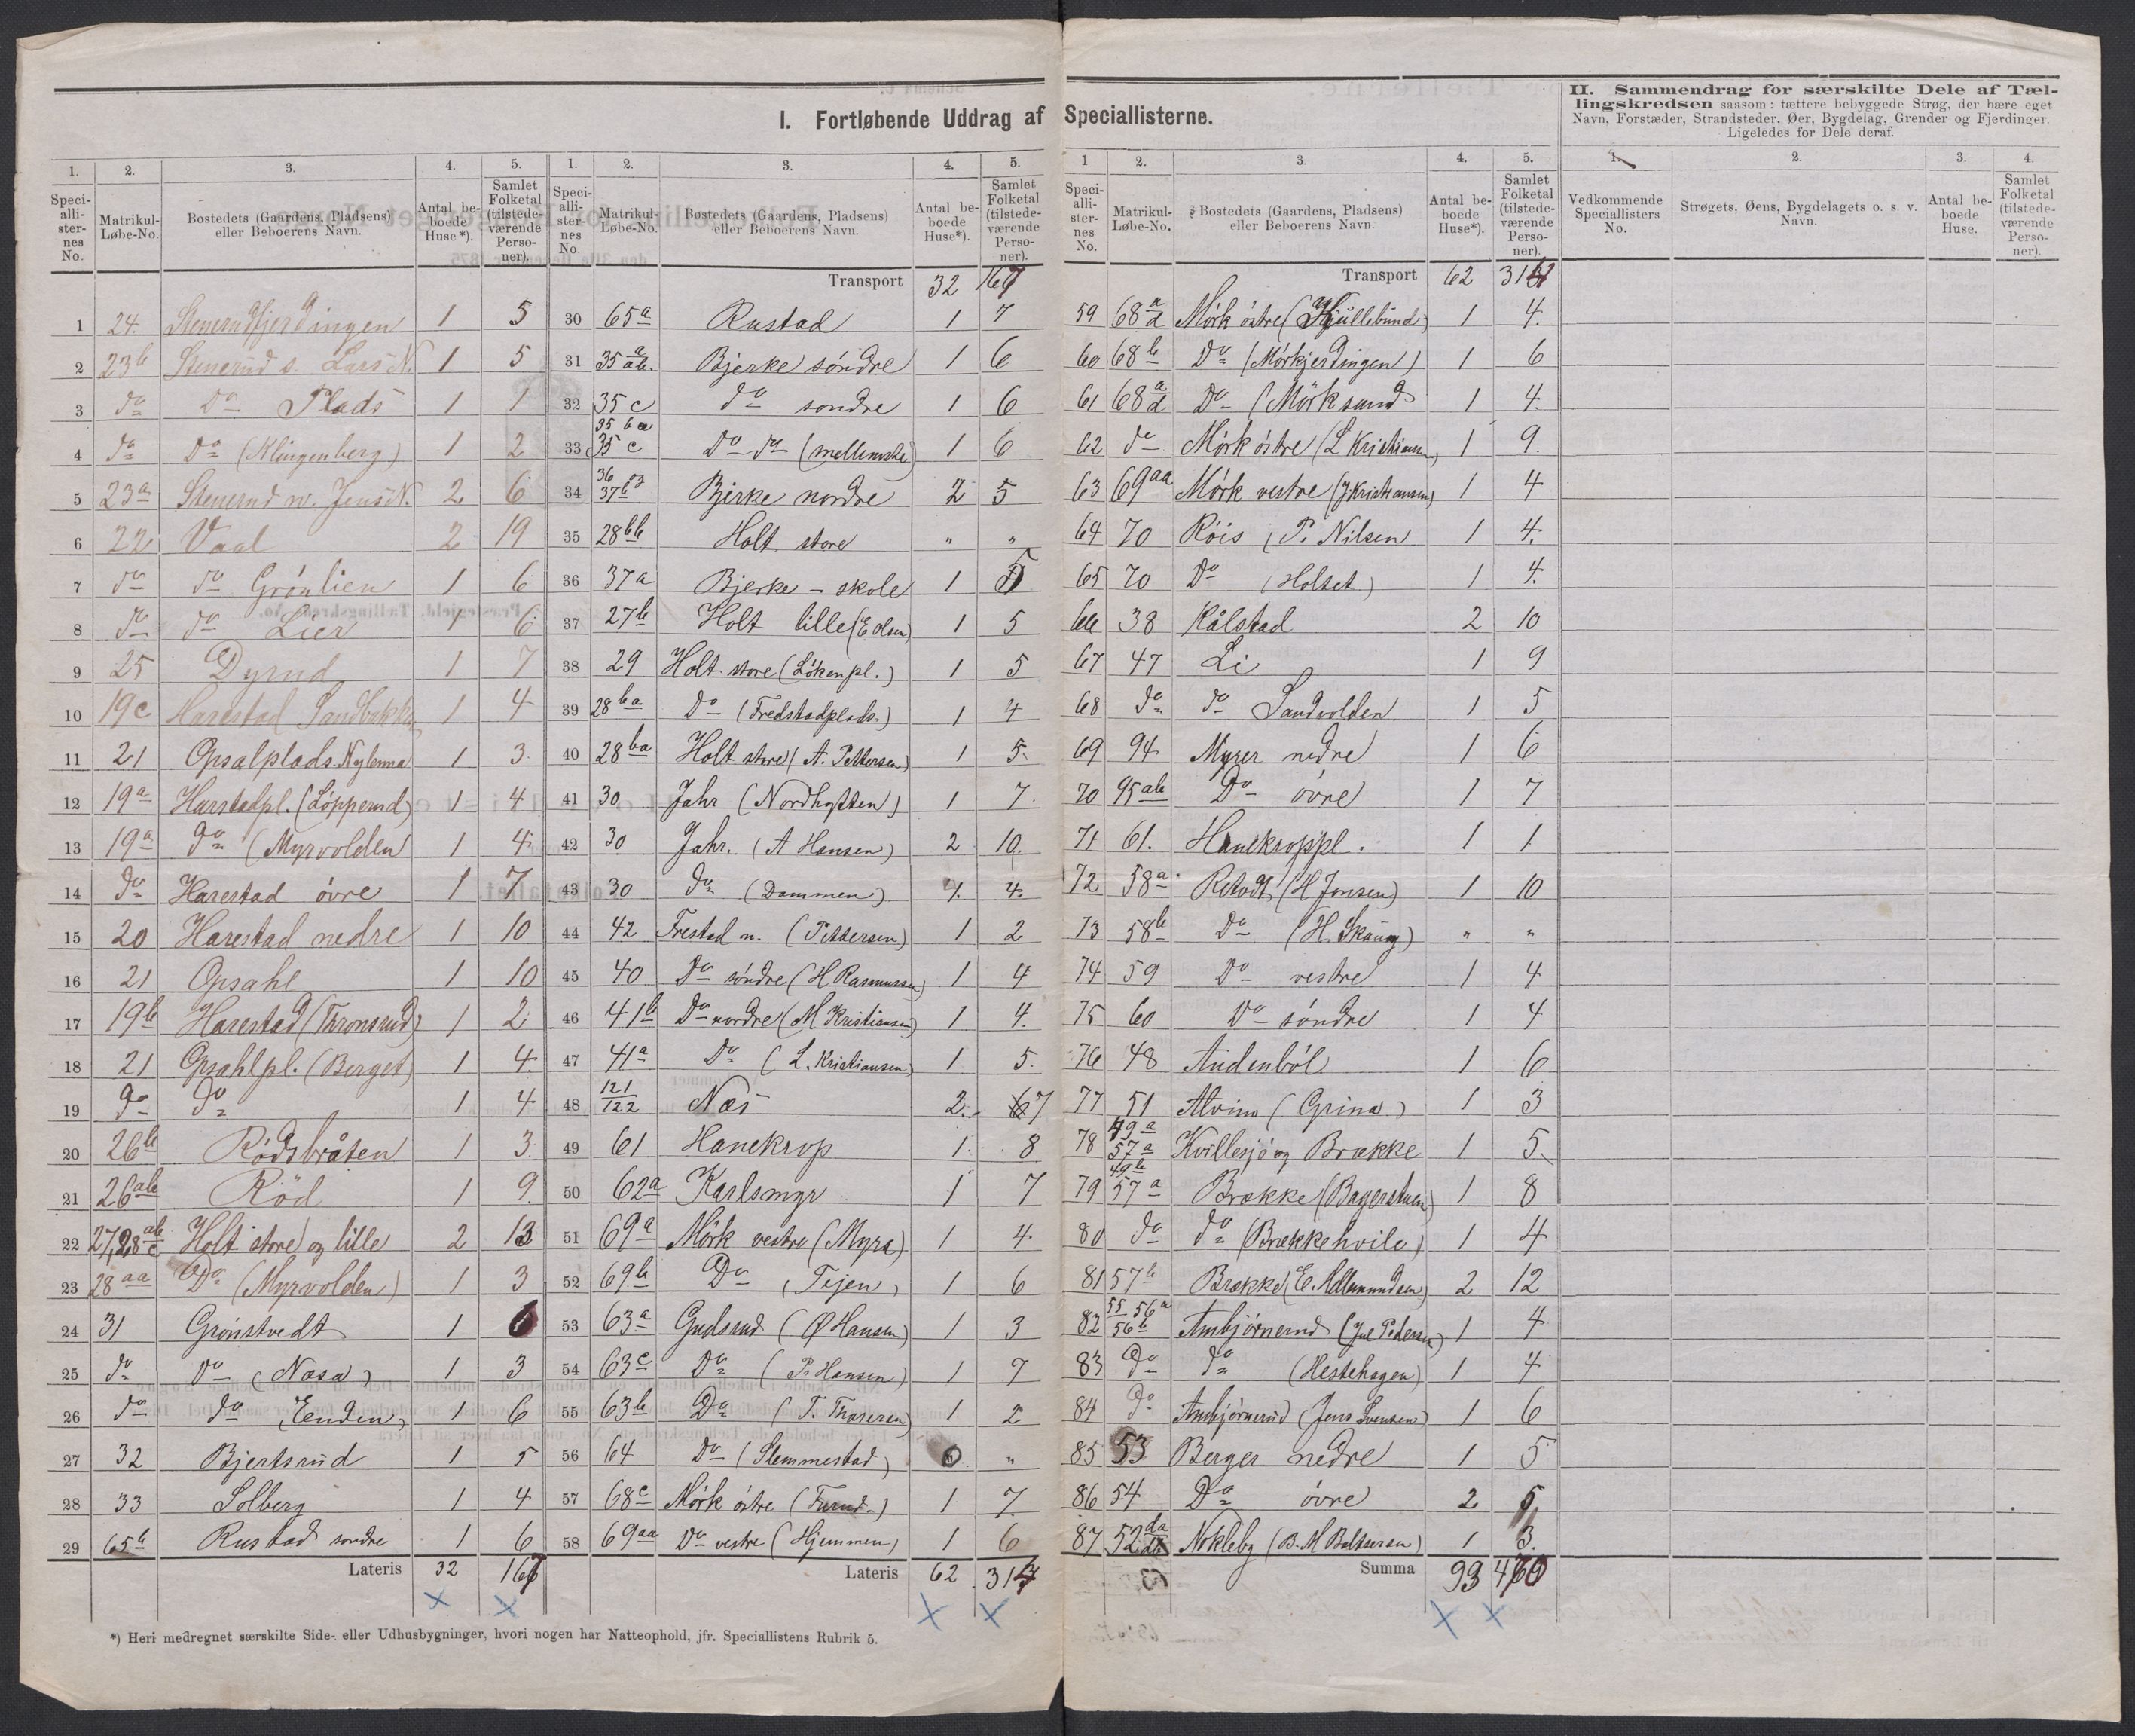 I. Fortløbende Uddrag af Speciallisterne.
II. Sammendrag for særskilte Dele af Tællingskredsen saasom: tættere bebyggede Strøg, der bære eget
Navn, Forstæder, Strandsteder, Øer, Bygdelag, Grender og Fjerdinger.
Ligeledes for Dele deraf.
1. 2. 3. 4. 5.
Speciallisternes No. Matrikul-Løbe-No. Bostedets (Gaardens, Pladsens) eller Beboerens Navn. Antal beboede Huse*). Samlet Folketal (tilstedeværende Personer).
1 24. Stenerudfjerdingen 1 5
2 23b Stenerud s. Lars N. 1 5
3 do Do Plads 1 1
4 do Do (Klingenberg) 1 2
5 23a Stenerud n. Jens N. 2 6
6 22 Vaal 2 19
7 do do Grønlien 1 6
8 do do Lier 1 6
9 25 Dyrud 1 7
10 19c Harestad Sandbakken 1 4
11 21 Opsalplads Nylenna 1 3
12 19a Harstadpl. (Løpperud) 1 4
13 19a do (Myrvolden 1 4
14 do Harestad øvre 1 7
15 20 Harestad nedre 1 10
16 21 Opsahl 1 10
17 19b Harestad (Thronsrud) 1 2
18 21 Opsahlpl. (Berget) 1 4
19 do do 1 4
20 26b Rødsbråten 1 3
21 26ab Rød 1 9
22 27,28 ab c Holt store og lille 2 13
23 28aa Do (Myrvolden) 1 3
24 31 Grønstvedt 1 6
25 do Do (Næsa) 1 3
26 do do (Enden) 1 6
27 32 Bjertsrud 1 5
28 33 Solberg 1 4
29 65b Rustad søndre 1 6
Lateris 32 167
*) Heri medregnet særskilte Side- eller Udhusbygninger, hvori nogen har Natteophold, jfr. Speciallistens Rubrik 5.
1. 2. 3. 4. 5.
Speciallisternes No. Matrikul-Løbe-No. Bostedets (Gaardens, Pladsens) eller Beboerens Navn. Antal beboede Huse*). Samlet Folketal (tilstedeværende Personer).
Transport 32 167
30 65a Rustad 1 7
31 35 a ab. Bjerke søndre 1 6
32 35 c do søndre 1 6
33 35 c Do do (mellemste) 1 6
34 36 37b Bjerke nordre 2 5
35 28bb Holt store " "
36 37a Bjerke - skole 1 5
37 27b Holt lille (E Olsen) 1 5
38 29 Holt store (Løkenpl.) 1 5
39 28ba Do (Fredstadplads.) 1 4
40 28ba Holt store (A. Pettersen) 1 5
41 30 Jahr (Nordhytten) 1 7
42 30 Jahr. (A Hansen) 2 10.
43 30 do (Dammen) 1. 4.
44 42 Frestad n. (Pettersen) 1 2
45 40 Do søndre (H Rasmussen) 1 4
46 41b Do nordre (M Kristiansen) 1 4.
47 41a Do (L. Kristiansen) 1 5.
48 121 122 Næs 2. 7
49 61 Hanekrop 1. 8
50 62a Karlsmyr 1 7
51 69a Mørk vestre (Myra) 1 4.
52 69b Do (Tejen) 1 6
53 63a Gudsrud (Ø Hansen) 1 3
54 63c Do (P. Hansen) 1 7
55 63b Do (T. Thoresen) 1 2
56 64 Do (Slemmestad) 0 "
57 68c Mørk østre (Furud.) 1 7
58 69aa Do vestre (Hjemmen) 1 6
Lateris 62 314
1 2. 3. 4. 5.
Speciallisternes No. Matrikul-Løbe-No. Bostedets (Gaardens, Pladsens) eller Beboerens Navn. Antal beboede Huse*). Samlet Folketal (tilstedeværende Personer).
Transport 62 314
59 68 a d Mørk østre (Kjüllebund) 1 4.
60 68b Do (Mørkjerdingen) 1 6
61 68 a d Do (Mørksand 1 4.
62 do Mørk østre (L Kristiansen) 1 9.
63 69aa Mørk vestre (J Kristiansen) 1 4
64 70 Røis (P. Nilsen 1 4.
65 70 Do (Holset) 1 4.
66 38 Rålstad 2 10
67 47 Li 1 9
68 do do Sandvolden 1 5
69 94 Myrer nedre 1 6
70 95ab Do øvre 1 7
71 61. Hanekroppl. 1 1
72 58a (H Jonsen) 1 10
73 58b Do (H. Skaug) " "
74 59 Do vestre 1 4
75 60 Do søndre 1 4
76 48 Audenbøl 1 6
77 51 Alvim (Grina) 1 3
78 49a 57a Kvillesjø og Brække 1 5
79 49b 57a Brække (Bagerstuen) 1 8
80 do do (Brækkehvile) 1 4
81 57b Brække (E. Adlemundsen) 2 12
82 55 56a 56b Ambjørnerud (Jul Pedersen) 1 4
83 do do (Hestehagen) 1 4
84 do Ambjørnerud (Jens Svensen) 1 6
85 53 Berger nedre 1 5
86 54 Do øvre 2 5
87 52 Nøkleby (B. M Baltsersen) 1 3.
Summa 93 460
1. 2. 3. 4.
Vedkommende Speciallisters No. Strøgets, Øens, Bygdelagets o. s. v. Navn. Antal beboede Huse. Samlet Folketal (tilstedeværende Personer).